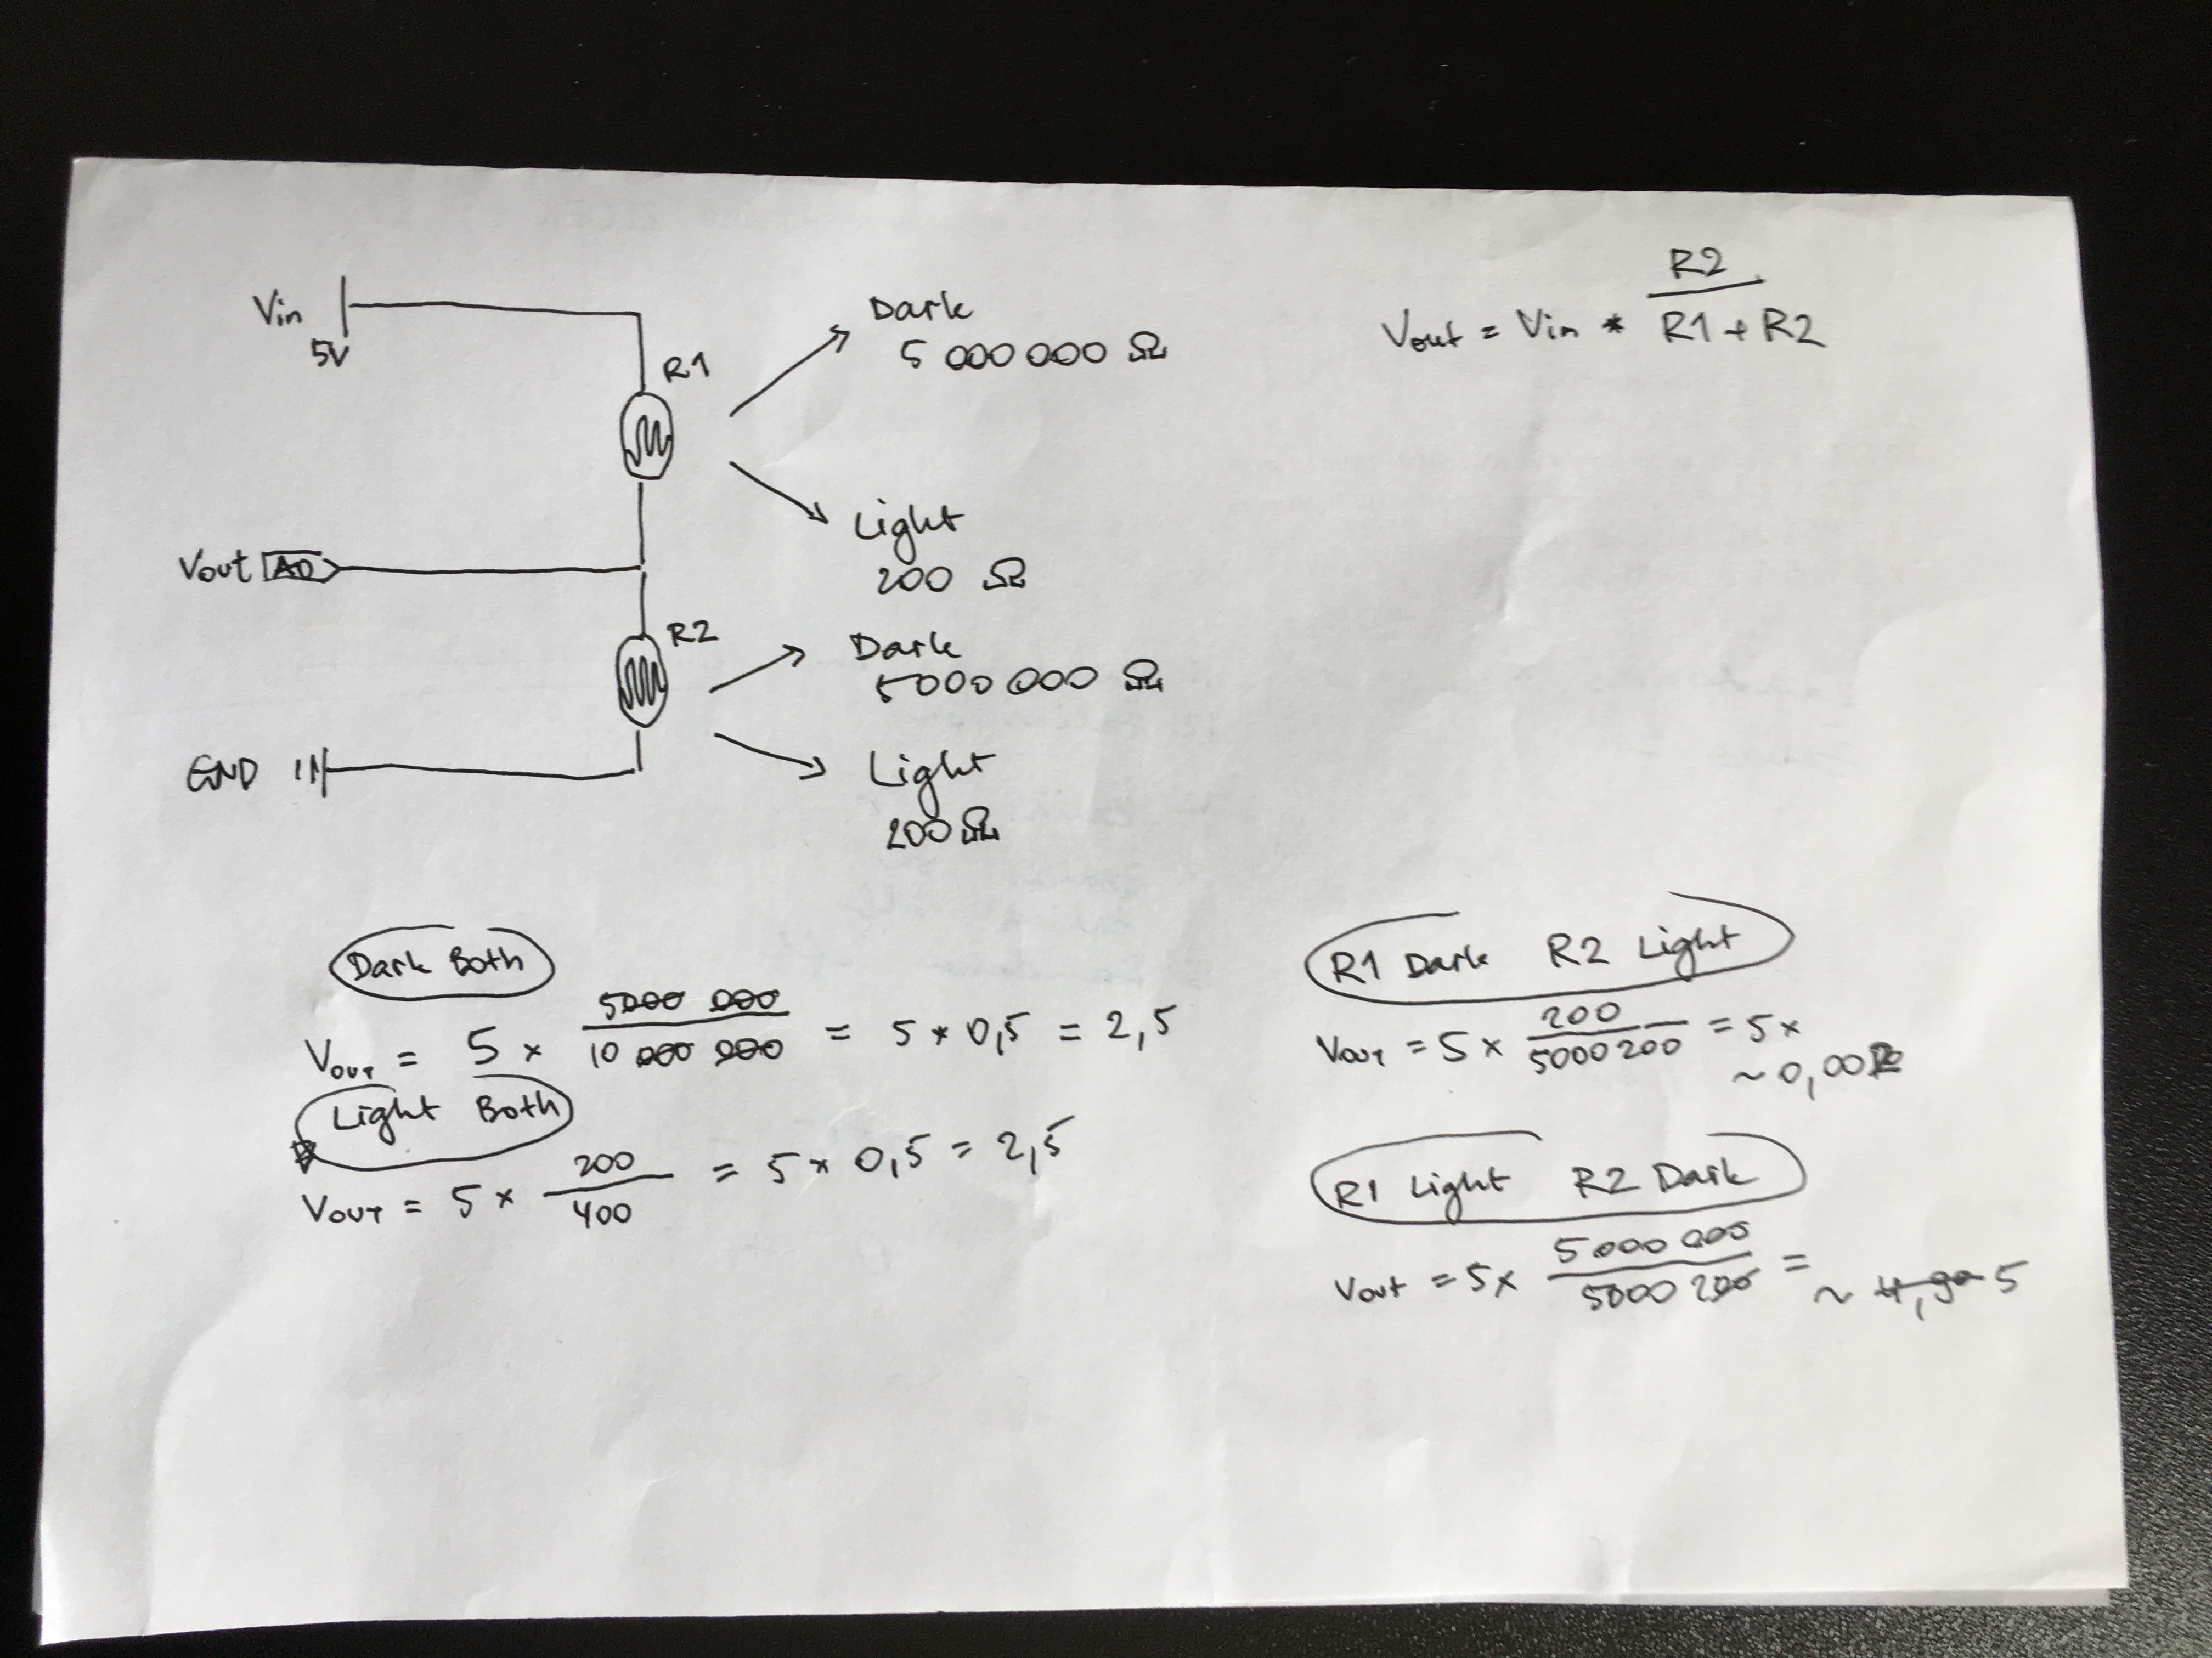 Vin
5V
R1
Dark
5 000 000 Ω
Light
200 Ω
Vout A0
R2
Dark
5000 000 Ω
Light
200 Ω
GND
Vout = Vin * R2
R1 + R2
Dark Both
VOUT = 5 × 5000 000
10 000 000
= 5 * 0,5 = 2,5
Light Both
VOUT = 5 × 200
400
= 5 * 0,5 = 2,5
R1 Dark R2 Light
VOUT = 5 × 200
5000200
= 5 ×
~ 0,00
R1 Light R2 Dark
Vout = 5 × 5000 000
5000 200
=
~ 4,9 5